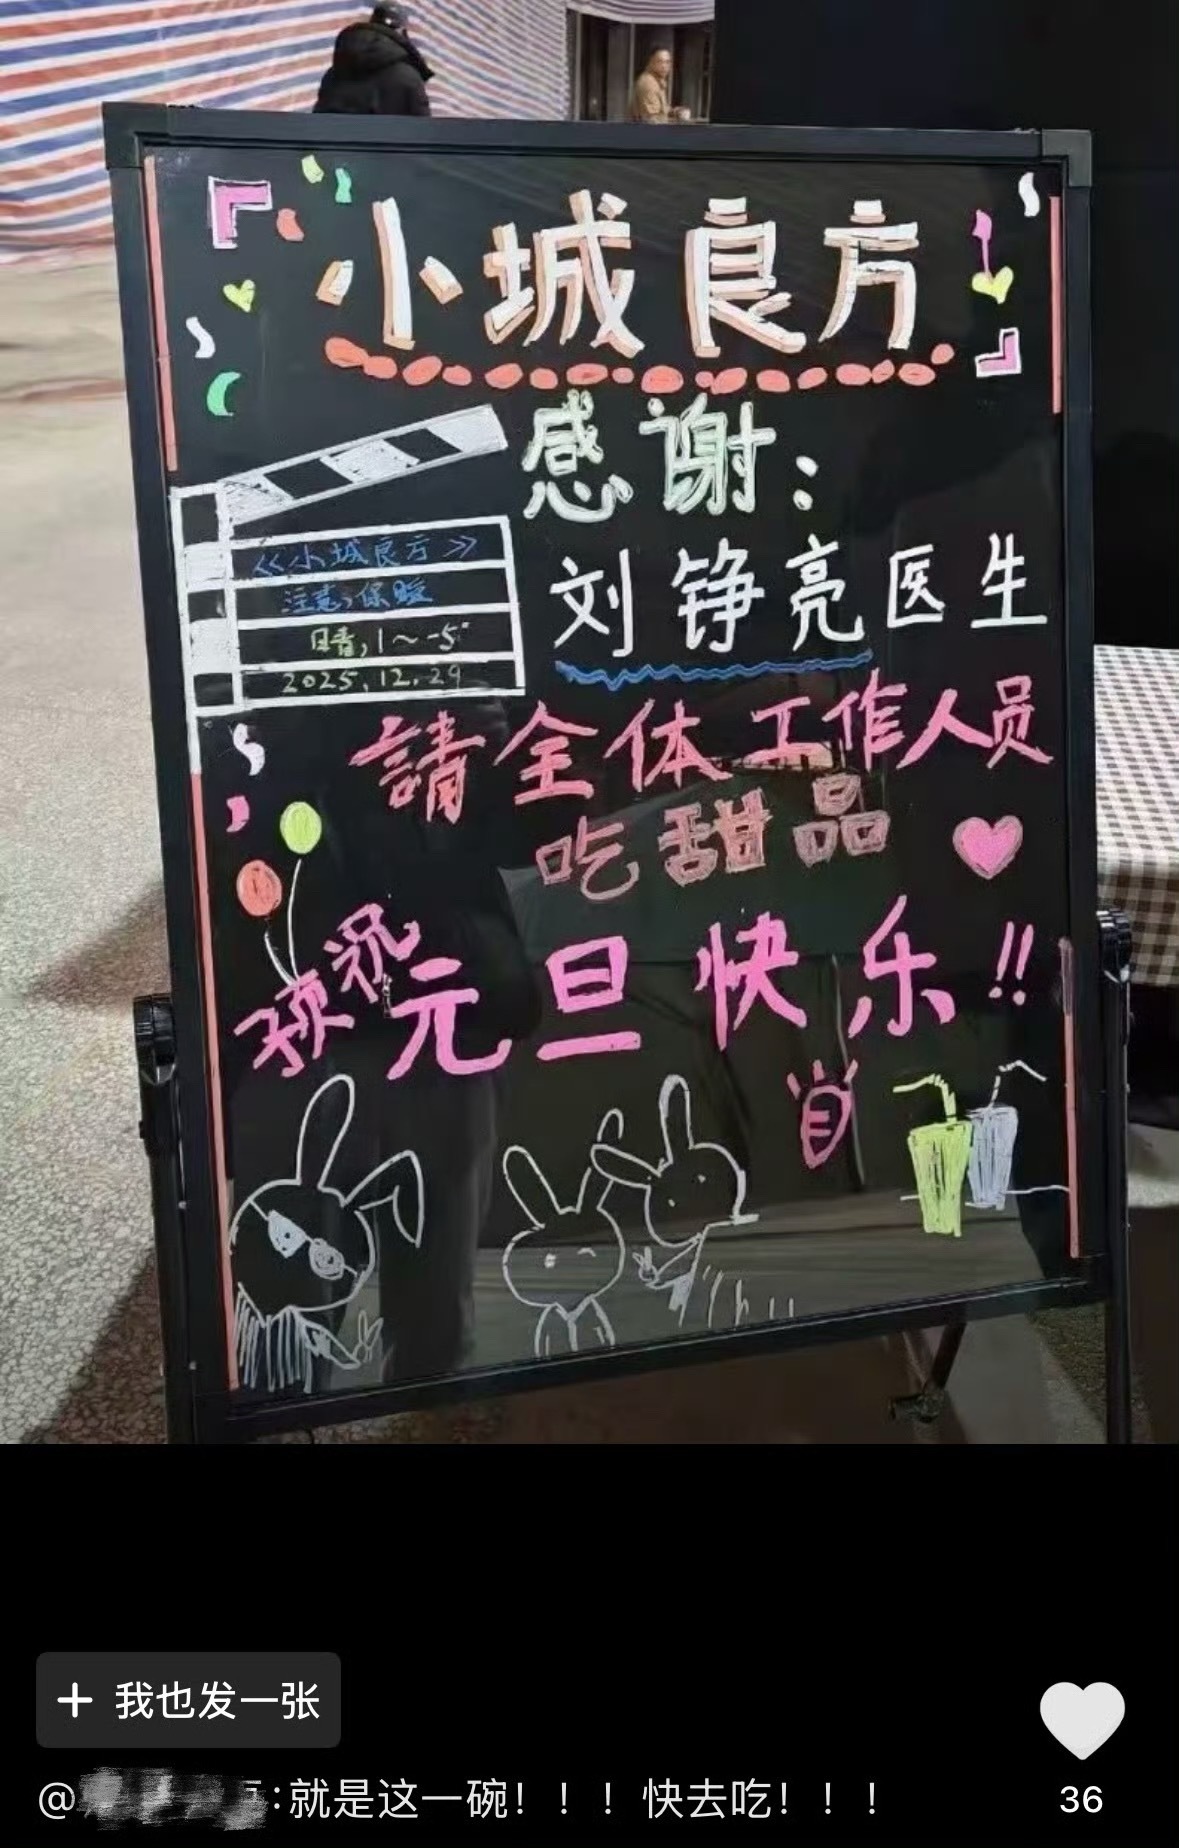 小城良方
感谢：
《小城良方》
注意，保暖
日青，1～-5°
2025.12.29
刘铮亮医生
請全体工作人员
吃甜品
预祝
元旦快乐!!
+ 我也发一张
:就是这一碗！！！快去吃！！！
36